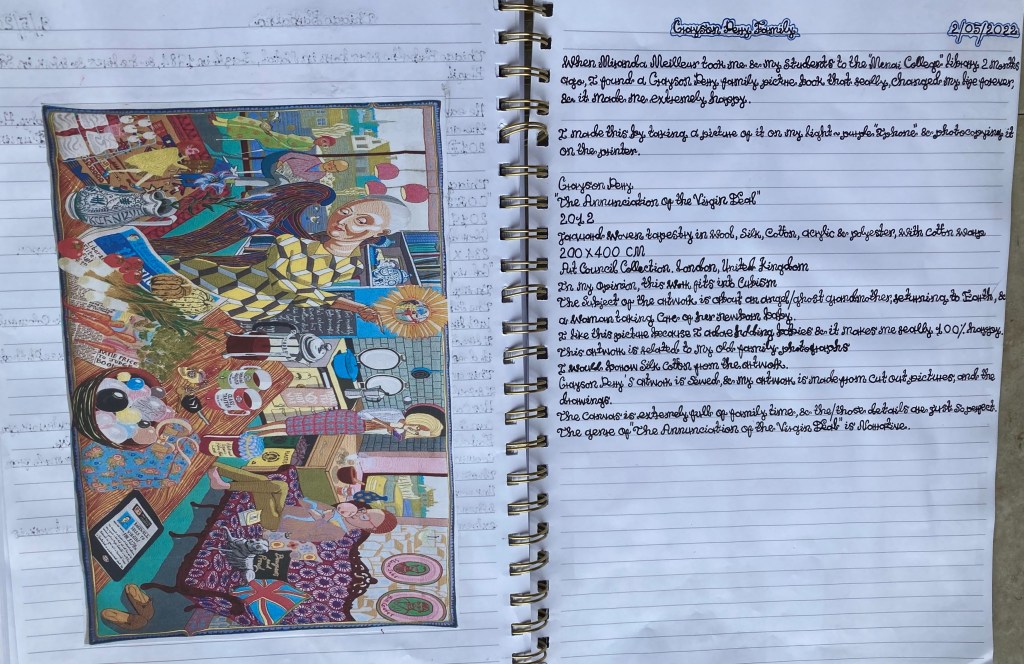 Grayson Perry Family
2/05/2022
When Miranda Meilleur took me & my students to the "Menai College" library 2 months
ago, I found a Grayson Perry family picture book that really, changed my life forever,
& it made me extremely happy.
I made this by taking a picture of it on my light~purple "I~phone" & photocopying it
on the printer.
Grayson Perry
"The Annunciation of the Virgin Deal"
2012
Jaquard Woven tapestry in wool, Silk, Cotton, acrylic & polyester, with cotton warp
200 x 400 CM
Art Council Collection, London, United Kingdom
In my opinion, this work fits into Cubism
The Subject of the artwork is about an angel/ghost grandmother, returning to Earth, &
a woman taking Care of her newborn baby.
I like this picture because I adore holding babies & it makes me really 100% happy.
This artwork is related to my old family photographs
I would borrow Silk Cotton from the artwork.
Grayson Perry's artwork is sewed, & my artwork is made from cut out pictures, and the
drawings.
The Canvas is extremely full of family time, & the/those details are just so perfect.
The genre of "The Annunciation of the Virgin Deal" is Narrative.